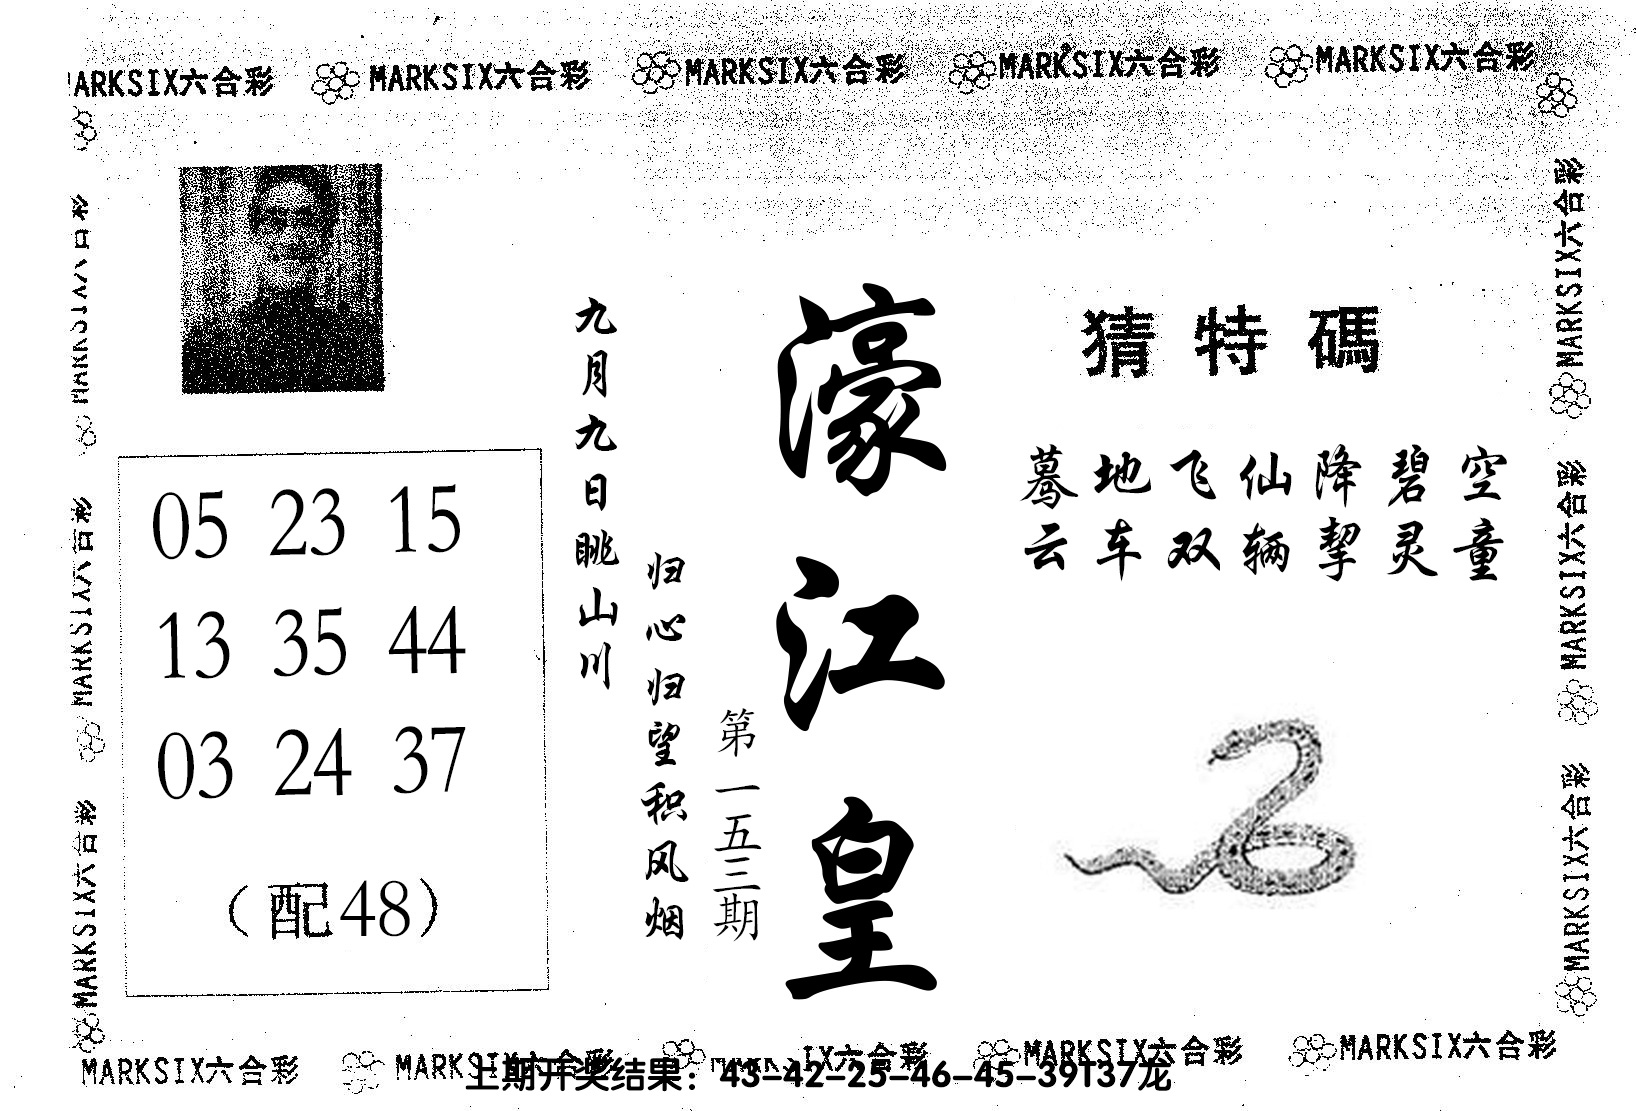 MARKSIX六合彩 MARKSIX六合彩 MARKSIX六合彩 MARKSIX六合彩 MARKSIX六合彩
MARKSIX六合彩
MARKSIX六合彩
MARKSIX六合彩
05 23 15
13 35 44
03 24 37
（配48）
九月九日眺山川
归心归望积风烟
第一五三期
濠江皇
猜特碼
蓦地飞仙降碧空
云车双辆挈灵童
MARKSIX六合彩
MARKSIX六合彩
MARKSIX六合彩
MARKSIX六合彩 MARKSIX六合彩 IX六合彩 MARKSIX六合彩 MARKSIX六合彩
上期开奖结果：43-42-25-46-45-39T37龙